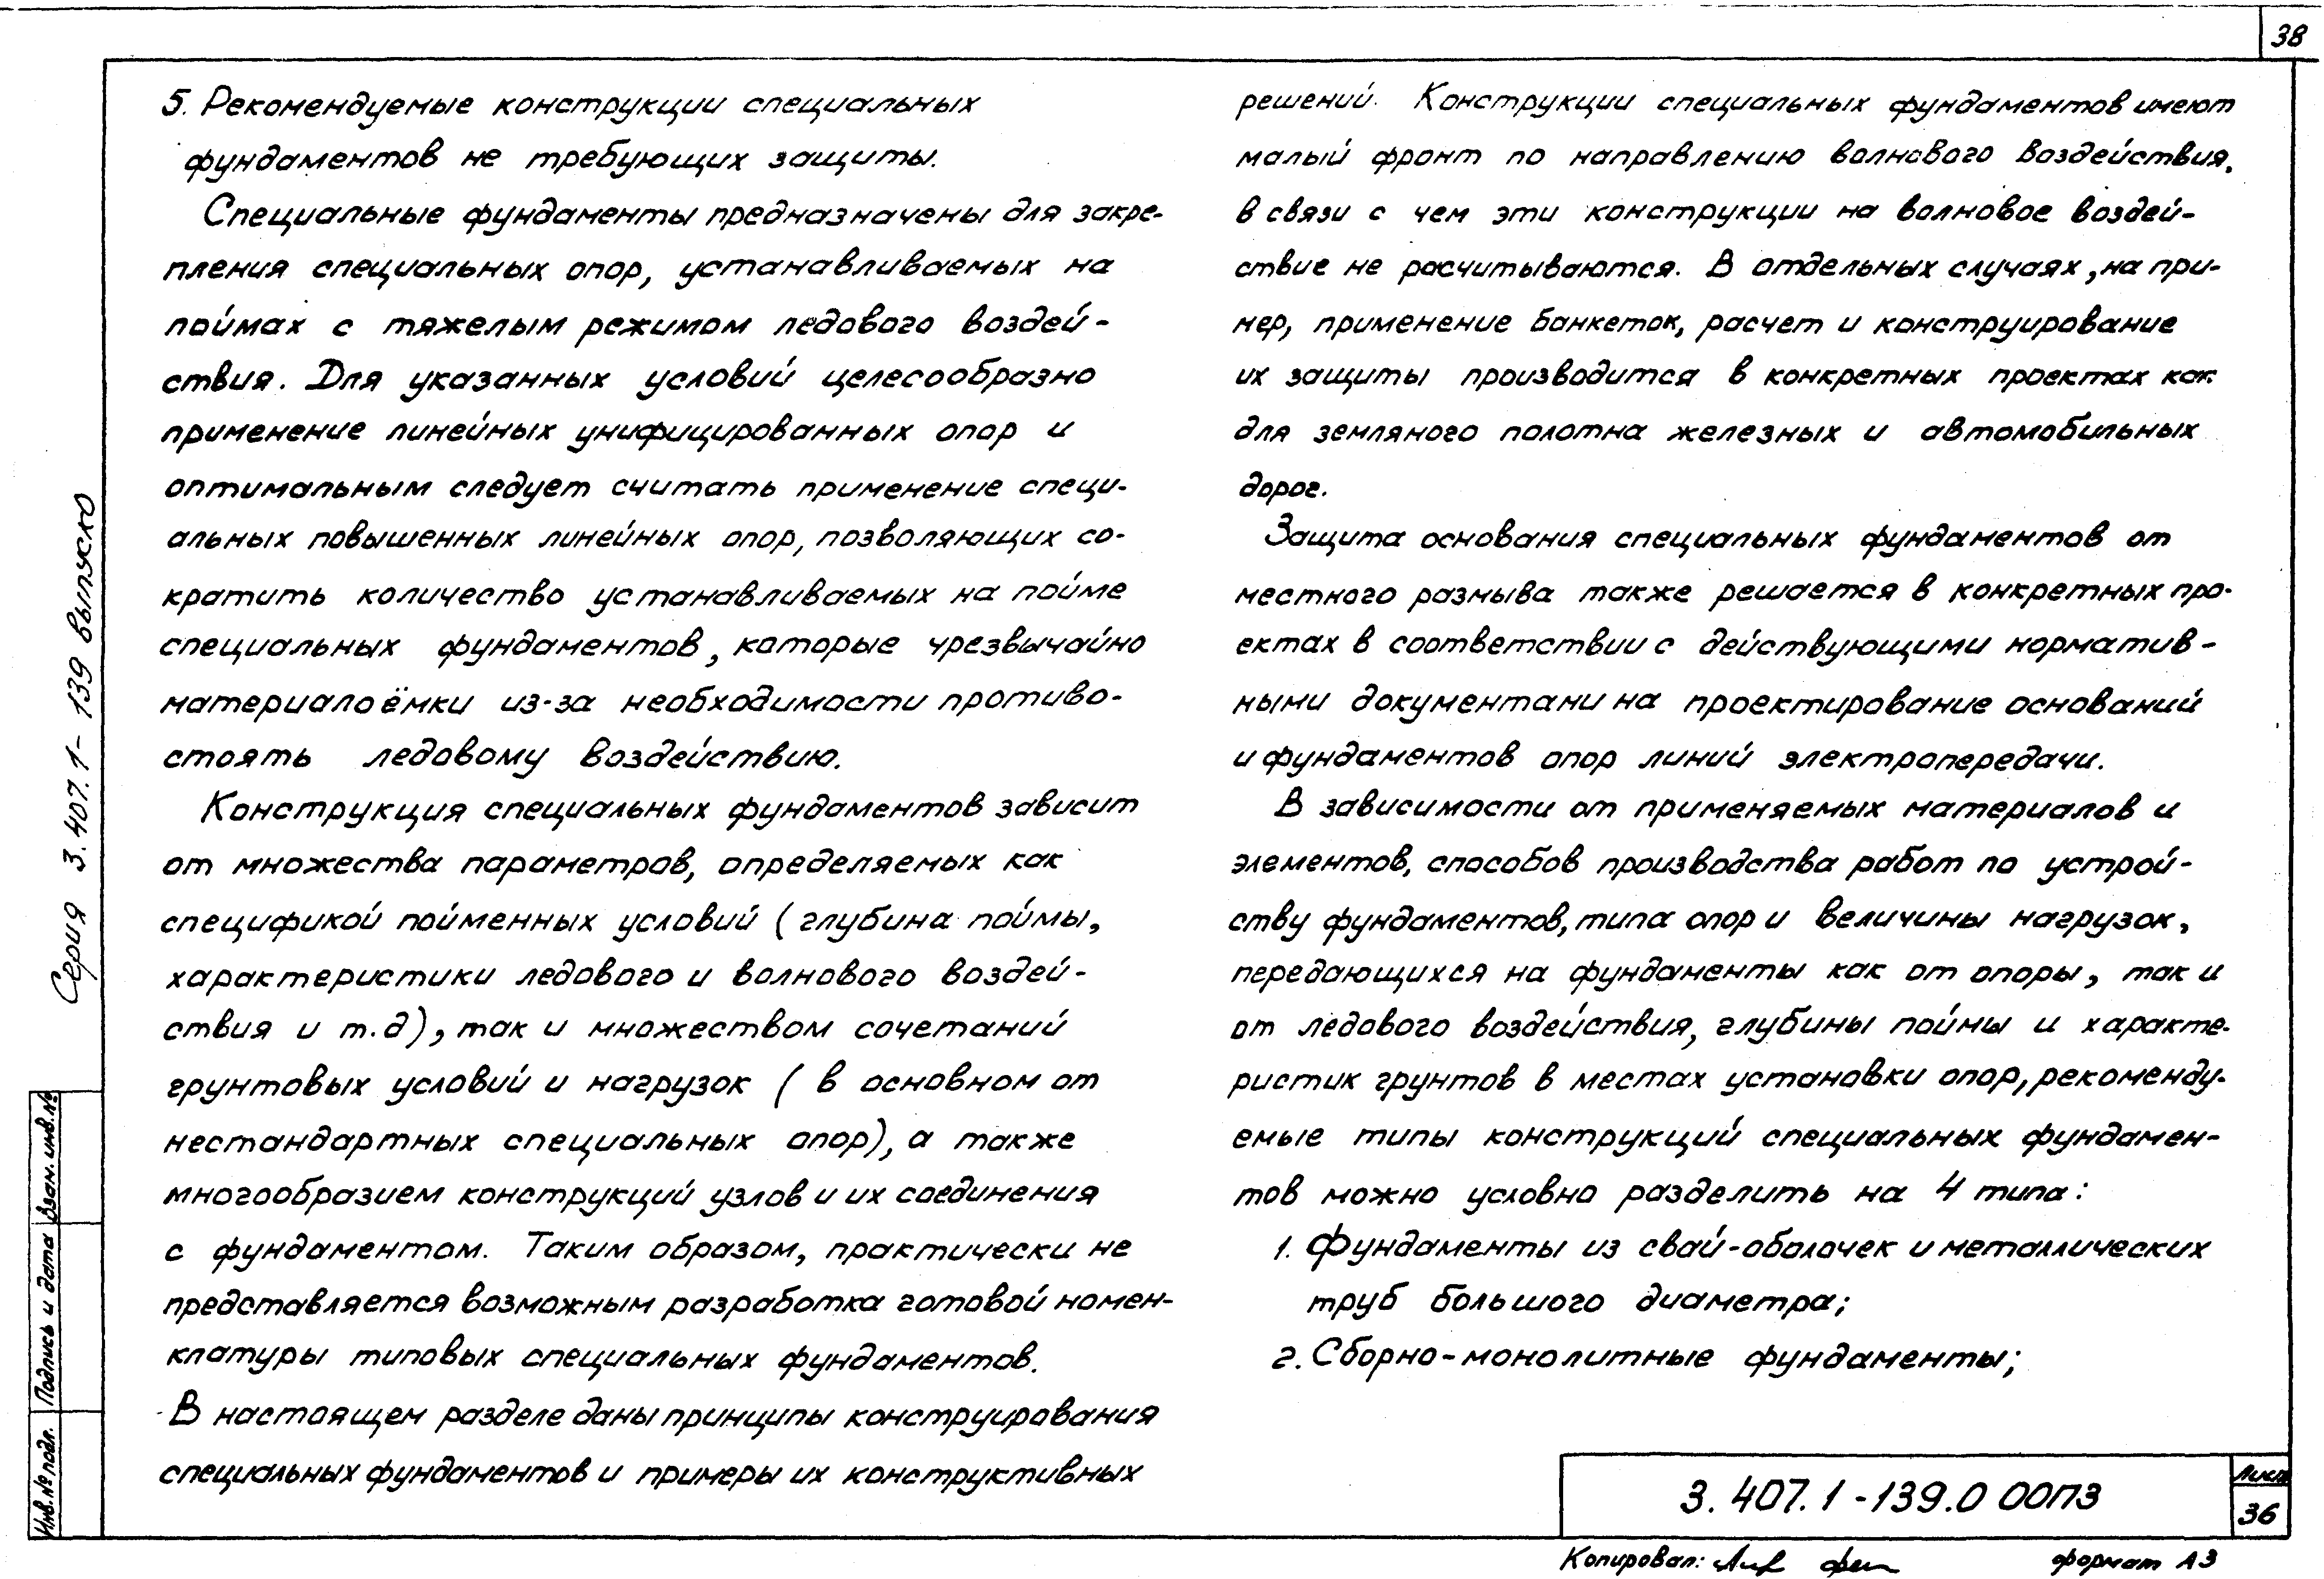 38
5. Рекомендуемые конструкции специальных
фундаментов не требующих защиты.
Специальные фундаменты предназначены для закре-
пления специальных опор, устанавливаемых на
поймах с тяжелым режимом ледового воздей-
ствия. Для указанных условий целесообразно
применение линейных унифицированных опор и
оптимальным следует считать применение специ-
альных повышенных линейных опор, позволяющих со-
кратить количество устанавливаемых на пойме
специальных фундаментов, которые чрезвычайно
материалоёмки из-за необходимости противо-
стоять ледовому воздействию.
Конструкция специальных фундаментов зависит
от множества параметров, определяемых как
спецификой пойменных условий (глубина поймы,
характеристики ледового и волнового воздей-
ствия и т.д), так и множеством сочетаний
грунтовых условий и нагрузок (в основном от
нестандартных специальных опор), а также
многообразием конструкций узлов и их соединения
с фундаментом. Таким образом, практически не
представляется возможным разработка готовой номен-
клатуры типовых специальных фундаментов.
В настоящем разделе даны принципы конструирования
специальных фундаментов и примеры их конструктивных
решений. Конструкции специальных фундаментов имеют
малый фронт по направлению волнового воздействия,
в связи с чем эти конструкции на волновое воздей-
ствие не расчитываются. В отдельных случаях, на при-
мер, применение банкеток, расчет и конструирование
их защиты производится в конкретных проектах как
для земляного полотна железных и автомобильных
дорог.
Защита основания специальных фундаментов от
местного размыва также решается в конкретных про-
ектах в соответствии с действующими норматив-
ными документами на проектирование оснований
и фундаментов опор линий электропередачи.
В зависимости от применяемых материалов и
элементов, способов производства работ по устрой-
ству фундаментов, типа опор и величины нагрузок,
передающихся на фундаменты как от опоры, так и
от ледового воздействия, глубины поймы и характе-
ристик грунтов в местах установки опор, рекоменду-
емые типы конструкций специальных фундамен-
тов можно условно разделить на 4 типа:
1. Фундаменты из свай-оболочек и металлических
труб большого диаметра;
2. Сборно-монолитные фундаменты;
Серия 3.407.1-139 выпуск 0
Взам. инв. №
Подпись и дата
Инв. № подл.
3.407.1-139.0 00ПЗ
Лист
36
Копировал:
формат А3